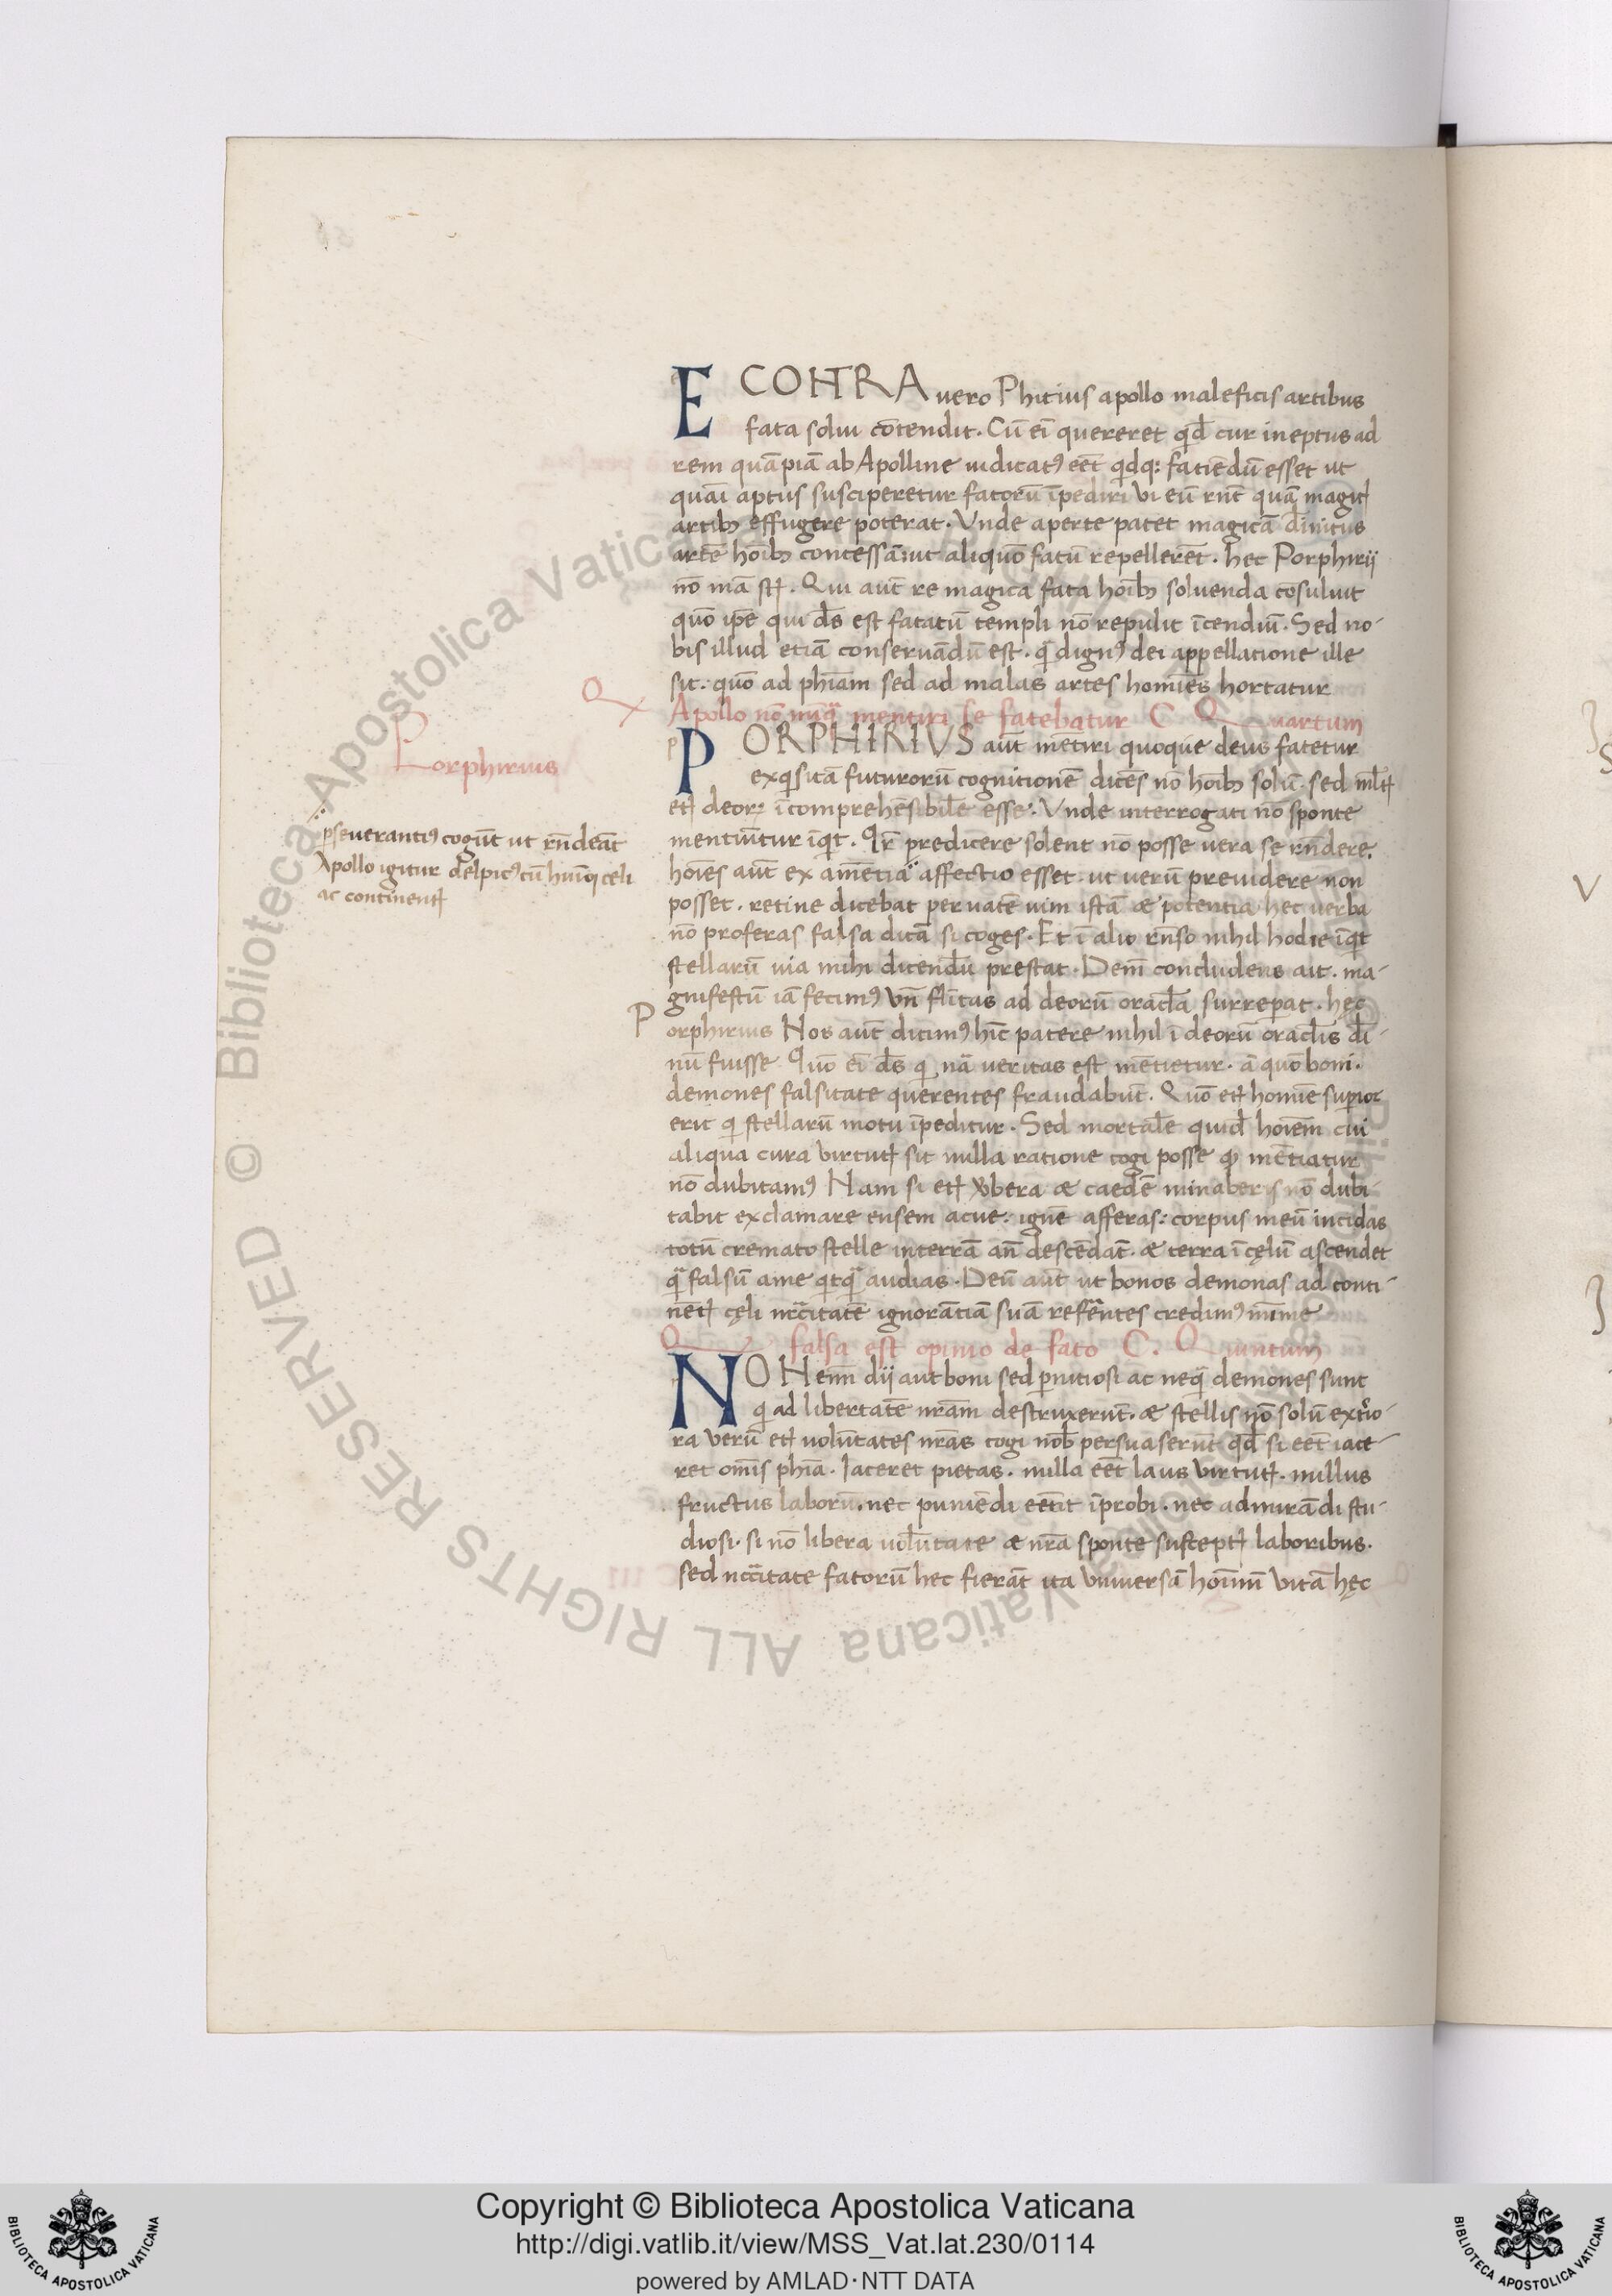 E CONTRA uero Phitius apollo maleficis artibus
fata solui cōtendit. Cū eī quereret qd̄ cur ineptus ad
rem quāpiā ab Apolline iudicatꝰ eēt qdqꝫ faciēdū esset ut
quāi aptus susciperetur fatorū īpediri ui eū rn̄t quā magicꝭ
artibꝫ effugere poterat. Vnde aperte patet magicā diuitus
artē hoībꝫ concessā: ut aliquō fatū repellerēt. hec Porphirij
nō mā st. Qui aūt re magica fata hoībꝫ soluenda cōsuluit
quō ip̄e qui ds̄ est fatatū templi nō repulit īcendiū. Sed no-
bis illud etiā conseruādū est. q̄ dignꝰ dei appellatione ille
sit: quō ad phīam sed ad malas artes homīēs hortatur
Q Apollo nō nūq̄ mentiri se fatebatur C Quartum
PORPHIRIVS aūt mētiri quoque deus fatetur
Porphirius
exqsitā futurorū cognitionē dicēs nō hoībꝫ solū. sed ml̄tꝭ
etꝭ deorꝫ īcomprehēsibile esse. Vnde interrogati nō sponte
perseuerantiꝰ cogūt ut rn̄deāt
mentiūtur īqt. qr̄ predicere solent nō posse uera se rn̄dere.
Apollo igitur delpicꝰ cū huīqꝫ celi
ac continentꝭ
hoīēs aūt ex amētia affectio esset. ut uerū preuidere non
posset. retine dicebat per uatē uim istā æ potentia hec uerba
nō proferas falsa dicā si coges. Et ī alio rn̄so nihil hodie īqt
stellarū uia mihi dicendū prestat. Deīn concludens ait. ma-
gnifestū iā fecimꝰ un̄ fl̄itas ad deorū oracl̄a surrepat. hęc
Porphirius Nos aūt dicimꝰ hīc patere nihil ī deorū oracl̄is di-
nū fuisse. Quō eī ds̄ q nā ueritas est mētietur. ā quō boni.
demones falsitate querentes fraudabūt. Quō etꝭ homīē superior
erit q stellarū motu īpeditur. Sed mortal̄e quid hoīem cui
aliqua cura uirtutꝭ sit nulla ratione cogi posse qꝫ mētiatur
nō dubitamꝰ Nam si etꝭ ūbera æ caedē minaberis nō dubi-
tabit exclamare ensem acue: ignē afferas: corpus meū incidas
totū cremato stelle interrā an̄ descēdāt. æ terra ī cęlū ascendet
q̄ falsū ame qtq̄ audias. Deū aūt ut bonos demonas ad conti-
nētꝭ cęli nc̄citatē ignorātiā suā referētes credimꝰ mīme
Q falsa est opinio de fato C. Quintum
NON enim dij aut boni sed pernitiosi ac neq̄ demones sunt
q ad libertatē nr̄am destruxerūt. æ stellis nō solū exterio-
ra uerū etꝭ uolūtates nr̄as cogi nob̄ persuaserūt qd̄ si eēt iace-
ret om̄is phīa. Iaceret pietas. nulla eēt laus uirtutꝭ. nullus
fructus laborū. nec puniēdi eēt īprobi. nec admirādi stu-
diosi. si nō libera uolūtate æ nr̄a sponte susceptꝭ laboribus.
sed nc̄citate fatorū hec fierāt ita uniuersā hoīnū uitā hęc
© Biblioteca Apostolica Vaticana ALL RIGHTS RESERVED
Copyright © Biblioteca Apostolica Vaticana
http://digi.vatlib.it/view/MSS_Vat.lat.230/0114
powered by AMLAD·NTT DATA
BIBLIOTECA APOSTOLICA VATICANA
BIBLIOTECA APOSTOLICA VATICANA